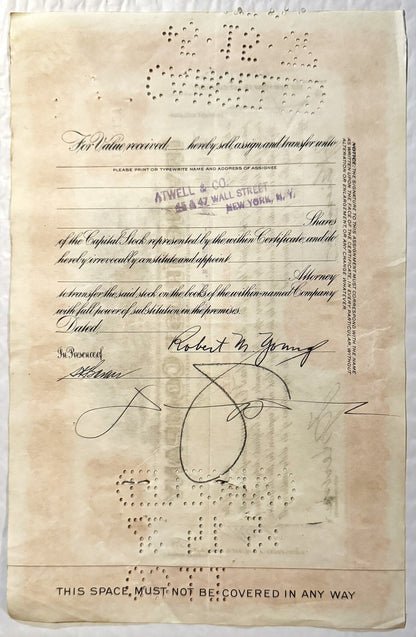 For Value received, hereby sell, assign and transfer unto
PLEASE PRINT OR TYPEWRITE NAME AND ADDRESS OF ASSIGNEE
ATWELL & CO.
45 & 47 WALL STREET
NEW YORK, N. Y.
Shares
of the Capital Stock represented by the within Certificate, and do
hereby irrevocably constitute and appoint
Attorney
to transfer the said stock on the books of the within-named Company
with full power of substitution in the premises.
Dated
In Presence of
Robert M Young
NOTICE: THE SIGNATURE TO THIS ASSIGNMENT MUST CORRESPOND WITH THE NAME
AS WRITTEN UPON THE FACE OF THE CERTIFICATE IN EVERY PARTICULAR WITHOUT
ALTERATION OR ENLARGEMENT OR ANY CHANGE WHATEVER
THIS SPACE MUST NOT BE COVERED IN ANY WAY